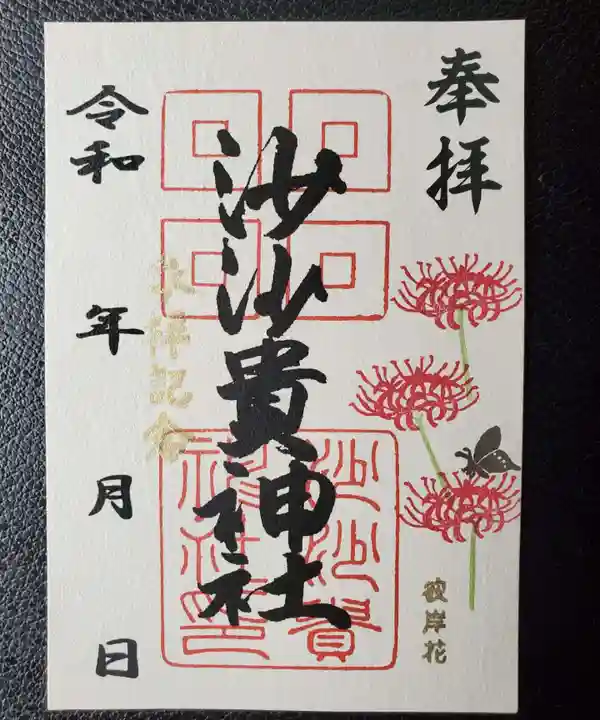 奉拝
彼岸花
沙沙貴神社
沙沙貴
神社印
参拝記念
令和 年 月 日